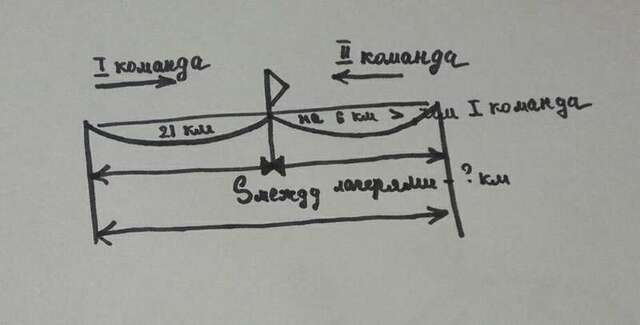 I команда
II команда
21 км
на 6 км > чем I команда
S между лагерями - ? км